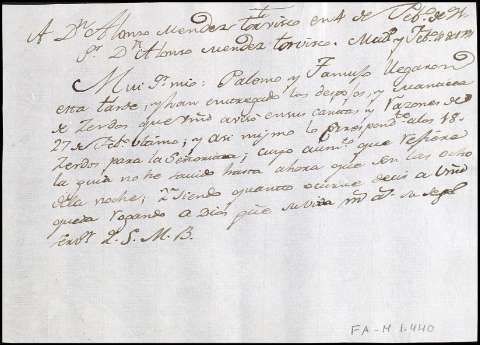 A Dn Alonso Mendez torvisco en 4 de Febo de
Sr Dn Alonso Mendez torvisco. Madd y Febo 4 de
Mui Sr mio: Palomo y Famoso llegaron
esta tarde, y han entregado los despojos, y
de Zerdos que Vmd aviso en sus cartas, y Razones de
27 de ultimo; y asi mismo lo Correspondte a los 18.
Zerdos para la Señorita; cuyo que refiere
la guia no he savido hasta ahora que son las ocho
de la noche; siendo quanto ocurre decir a Vmd
queda rogando a Dios que su vida ms as su segr
servr Q. S. M. B.
FA-M 1-440